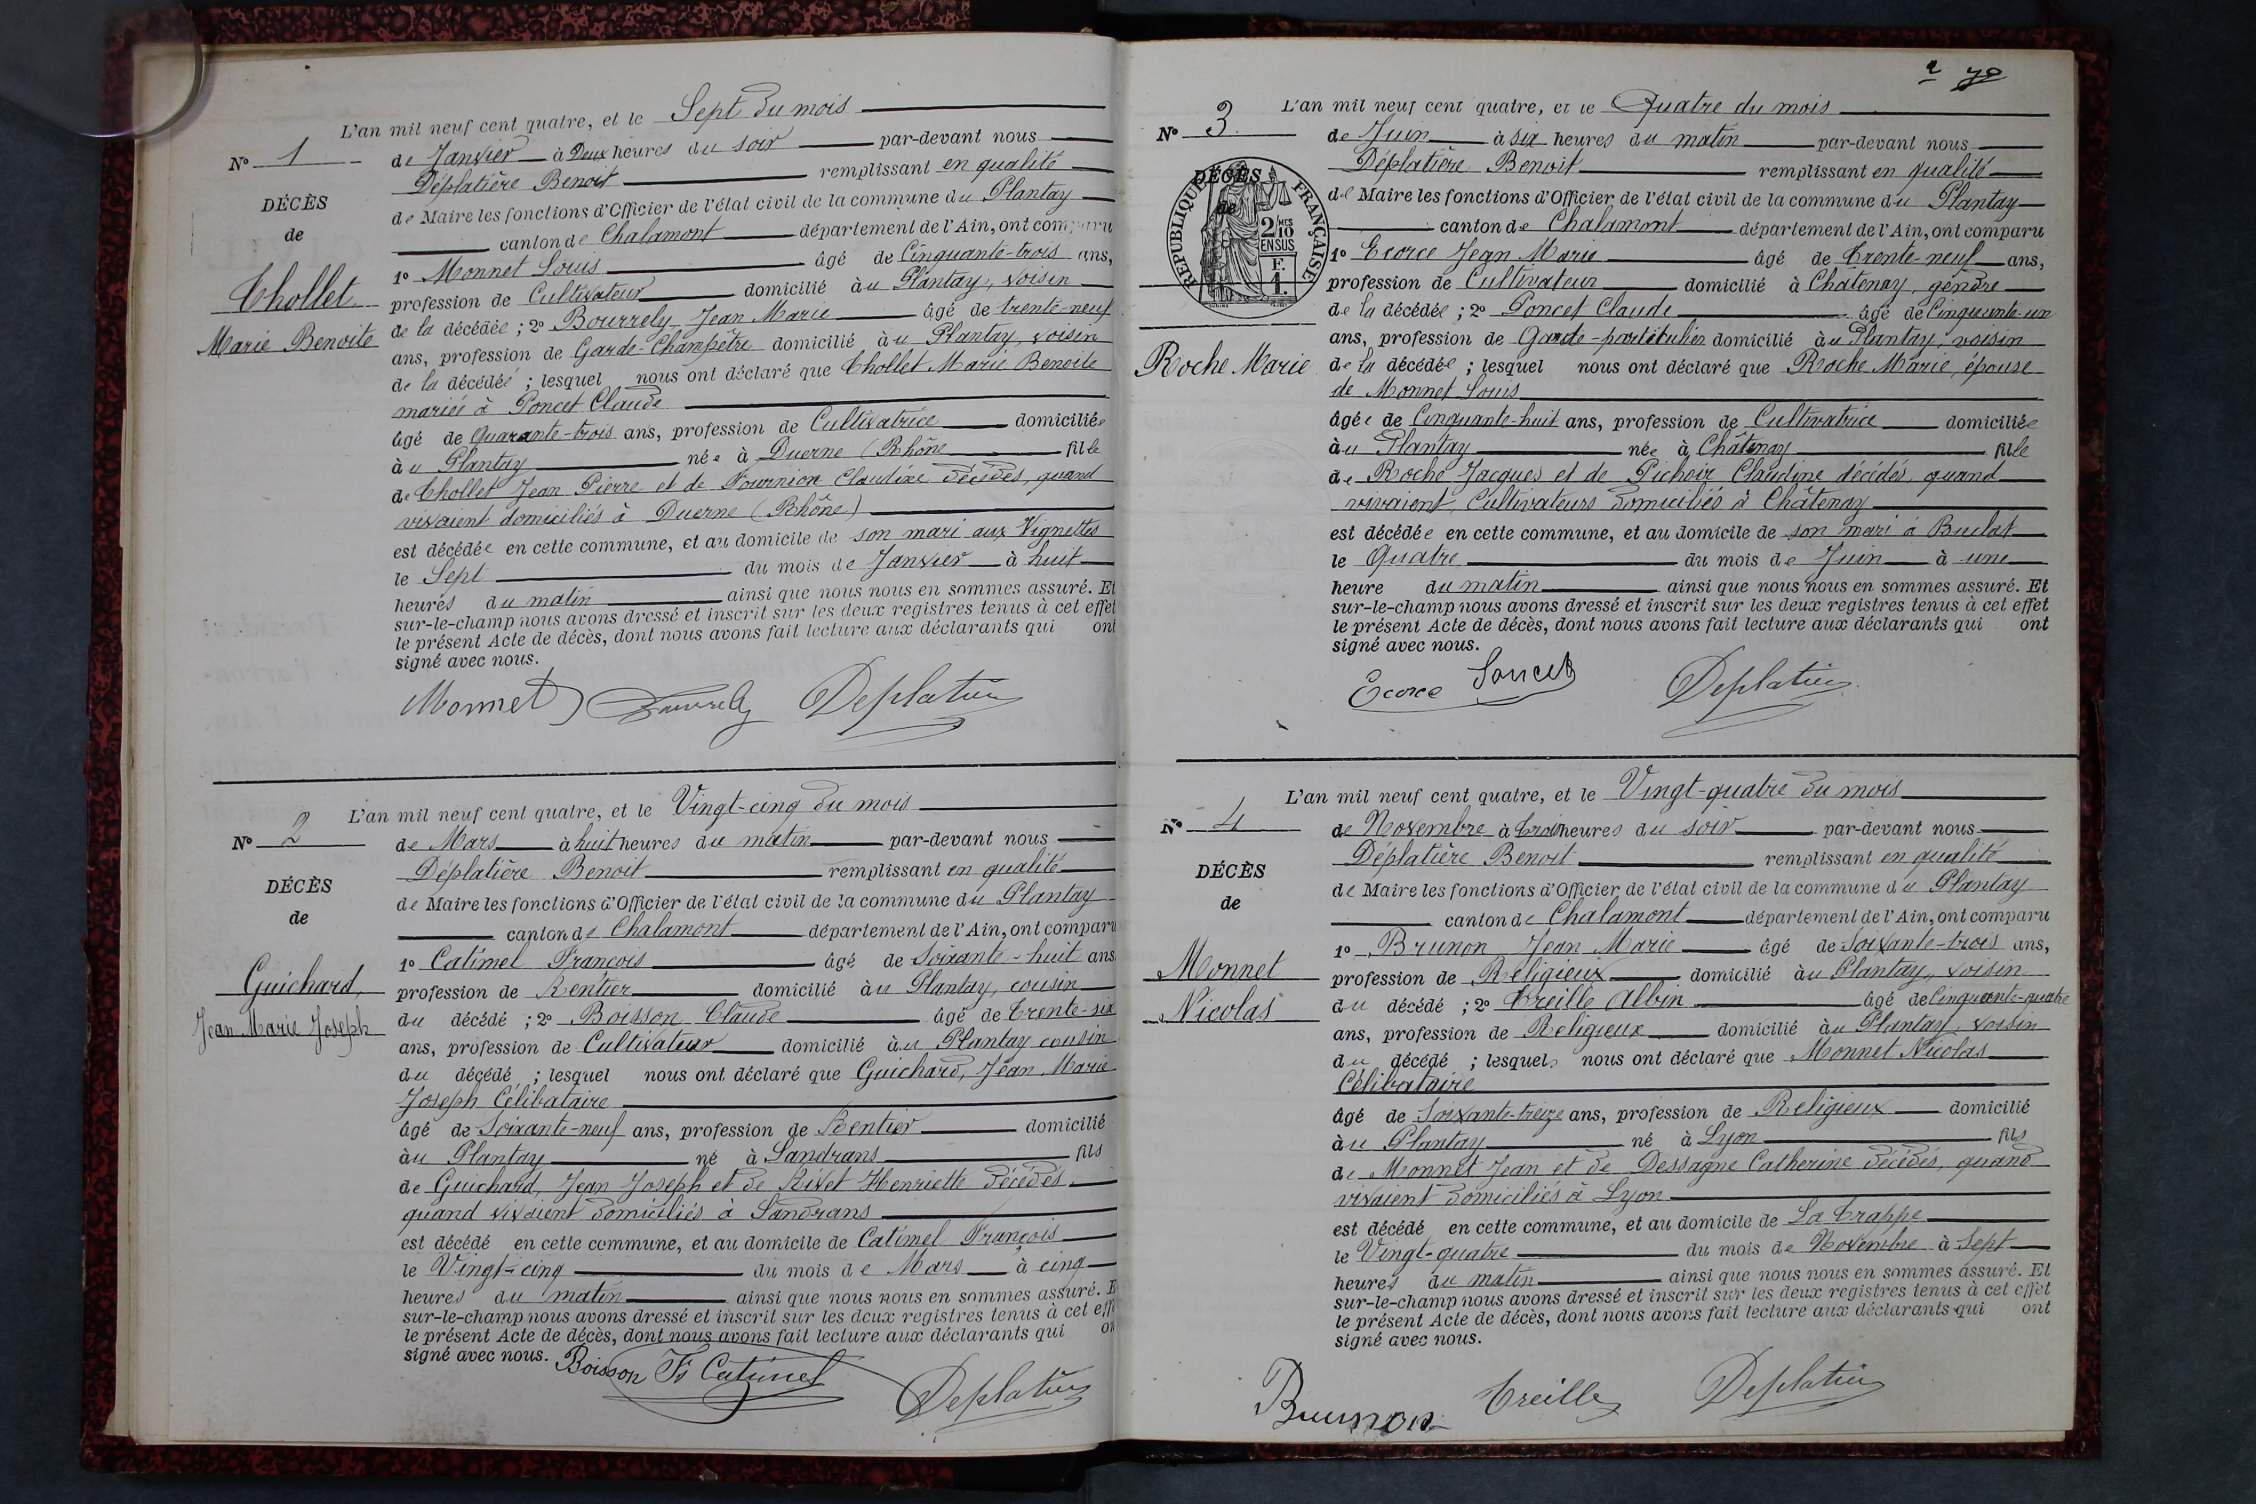 L'an mil neuf cent quatre, et le Sept du mois
N° 1 de Janvier à Deux heures du soir par-devant nous
Déplatière Benoit remplissant en qualité
DÉCÈS
de Maire les fonctions d'Officier de l'état civil de la commune du Plantay
de
canton de Chalamont département de l'Ain, ont comparu
1° Monnet Louis âgé de Cinquante-trois ans,
Chollet
profession de Cultivateur domicilié au Plantay, voisin
de la décédée ; 2° Bourrely Jean Marie âgé de trente-neuf
Marie Benoite
ans, profession de Garde-Champêtre domicilié au Plantay, voisin
de la décédée ; lesquel nous ont déclaré que Chollet Marie Benoite
mariée à Poncet Claude
âgé de Quarante-trois ans, profession de Cultivatrice domiciliée
au Plantay née à Duerne (Rhône fille
de Chollet Jean Pierre et de Fournion Claudine décédés, quand
vivaient domiciliés à Duerne (Rhône)
est décédée en cette commune, et au domicile de son mari aux Vignettes
le Sept du mois de Janvier à huit
heures du matin ainsi que nous nous en sommes assuré. Et
sur-le-champ nous avons dressé et inscrit sur les deux registres tenus à cet effet
le présent Acte de décès, dont nous avons fait lecture aux déclarants qui ont
signé avec nous.
Monnet Bourrely Deplatière
L'an mil neuf cent quatre, et le Vingt-cinq du mois
N° 2 de Mars à huit heures du matin par-devant nous
Déplatière Benoit remplissant en qualité
DÉCÈS
de Maire les fonctions d'Officier de l'état civil de la commune du Plantay
de
canton de Chalamont département de l'Ain, ont comparu
1° Catimel François âgé de Soixante-huit ans
Guichard,
profession de Rentier domicilié au Plantay, cousin
du décédé ; 2° Boisson Claude âgé de Trente-six
Jean Marie Joseph
ans, profession de Cultivateur domicilié au Plantay cousin
du décédé ; lesquel nous ont déclaré que Guichard, Jean Marie
Joseph Célibataire
âgé de Soixante-neuf ans, profession de Rentier domicilié
au Plantay né à Sandrans fils
de Guichard, Jean Joseph et de Rivet Henriette décédés
quand vivaient domiciliés à Sandrans
est décédé en cette commune, et au domicile de Catimel François
le Vingt-cinq du mois de Mars à cinq
heures du matin ainsi que nous nous en sommes assuré. E
sur-le-champ nous avons dressé et inscrit sur les deux registres tenus à cet eff
le présent Acte de décès, dont nous avons fait lecture aux déclarants qui on
signé avec nous. Boisson Fs Catimel Deplatière
2 70
L'an mil neuf cent quatre, et le Quatre du mois
N° 3 de Juin à six heures du matin par-devant nous
Déplatière Benoit remplissant en qualité
DÉCÈS
RÉPUBLIQUE FRANÇAISE
de Maire les fonctions d'Officier de l'état civil de la commune du Plantay
de
2/10 MES EN SUS
F. 1.
canton de Chalamont département de l'Ain, ont comparu
1° Ecorce Jean Marie âgé de Trente-neuf ans,
profession de Cultivateur domicilié à Châtenay, gendre
de la décédée ; 2° Poncet Claude âgé de Cinquante-un
ans, profession de Garde-particulier domicilié au Plantay, voisin
Roche Marie
de la décédée ; lesquel nous ont déclaré que Roche Marie, épouse
de Monnet Louis
âgée de Cinquante-huit ans, profession de Cultivatrice domiciliée
au Plantay née à Châtenay fille
de Roche Jacques et de Pichoir Claudine décédés, quand
vivaient, Cultivateurs domiciliés à Châtenay
est décédée en cette commune, et au domicile de son mari à Buclat
le Quatre du mois de Juin à une
heure du matin ainsi que nous nous en sommes assuré. Et
sur-le-champ nous avons dressé et inscrit sur les deux registres tenus à cet effet
le présent Acte de décès, dont nous avons fait lecture aux déclarants qui ont
signé avec nous.
Ecorce Poncet Deplatière
L'an mil neuf cent quatre, et le Vingt-quatre du mois
N° 4 de Novembre à trois heures du soir par-devant nous
Déplatière Benoit remplissant en qualité
DÉCÈS
de Maire les fonctions d'Officier de l'état civil de la commune du Plantay
de
canton de Chalamont département de l'Ain, ont comparu
1° Brunon Jean Marie âgé de Soixante-trois ans,
Monnet
profession de Religieux domicilié au Plantay, voisin
Nicolas
du décédé ; 2° Treille Albin âgé de Cinquante-quatre
ans, profession de Religieux domicilié au Plantay, voisin
du décédé ; lesquels nous ont déclaré que Monnet Nicolas
Célibataire
âgé de Soixante-treize ans, profession de Religieux domicilié
au Plantay né à Lyon fils
de Monnet Jean et de Dessagne Catherine décédés, quand
vivaient domiciliés à Lyon
est décédé en cette commune, et au domicile de La Trappe
le Vingt-quatre du mois de Novembre à Sept
heures du matin ainsi que nous nous en sommes assuré. Et
sur-le-champ nous avons dressé et inscrit sur les deux registres tenus à cet effet
le présent Acte de décès, dont nous avons fait lecture aux déclarants qui ont
signé avec nous.
Brunon Treille Deplatière